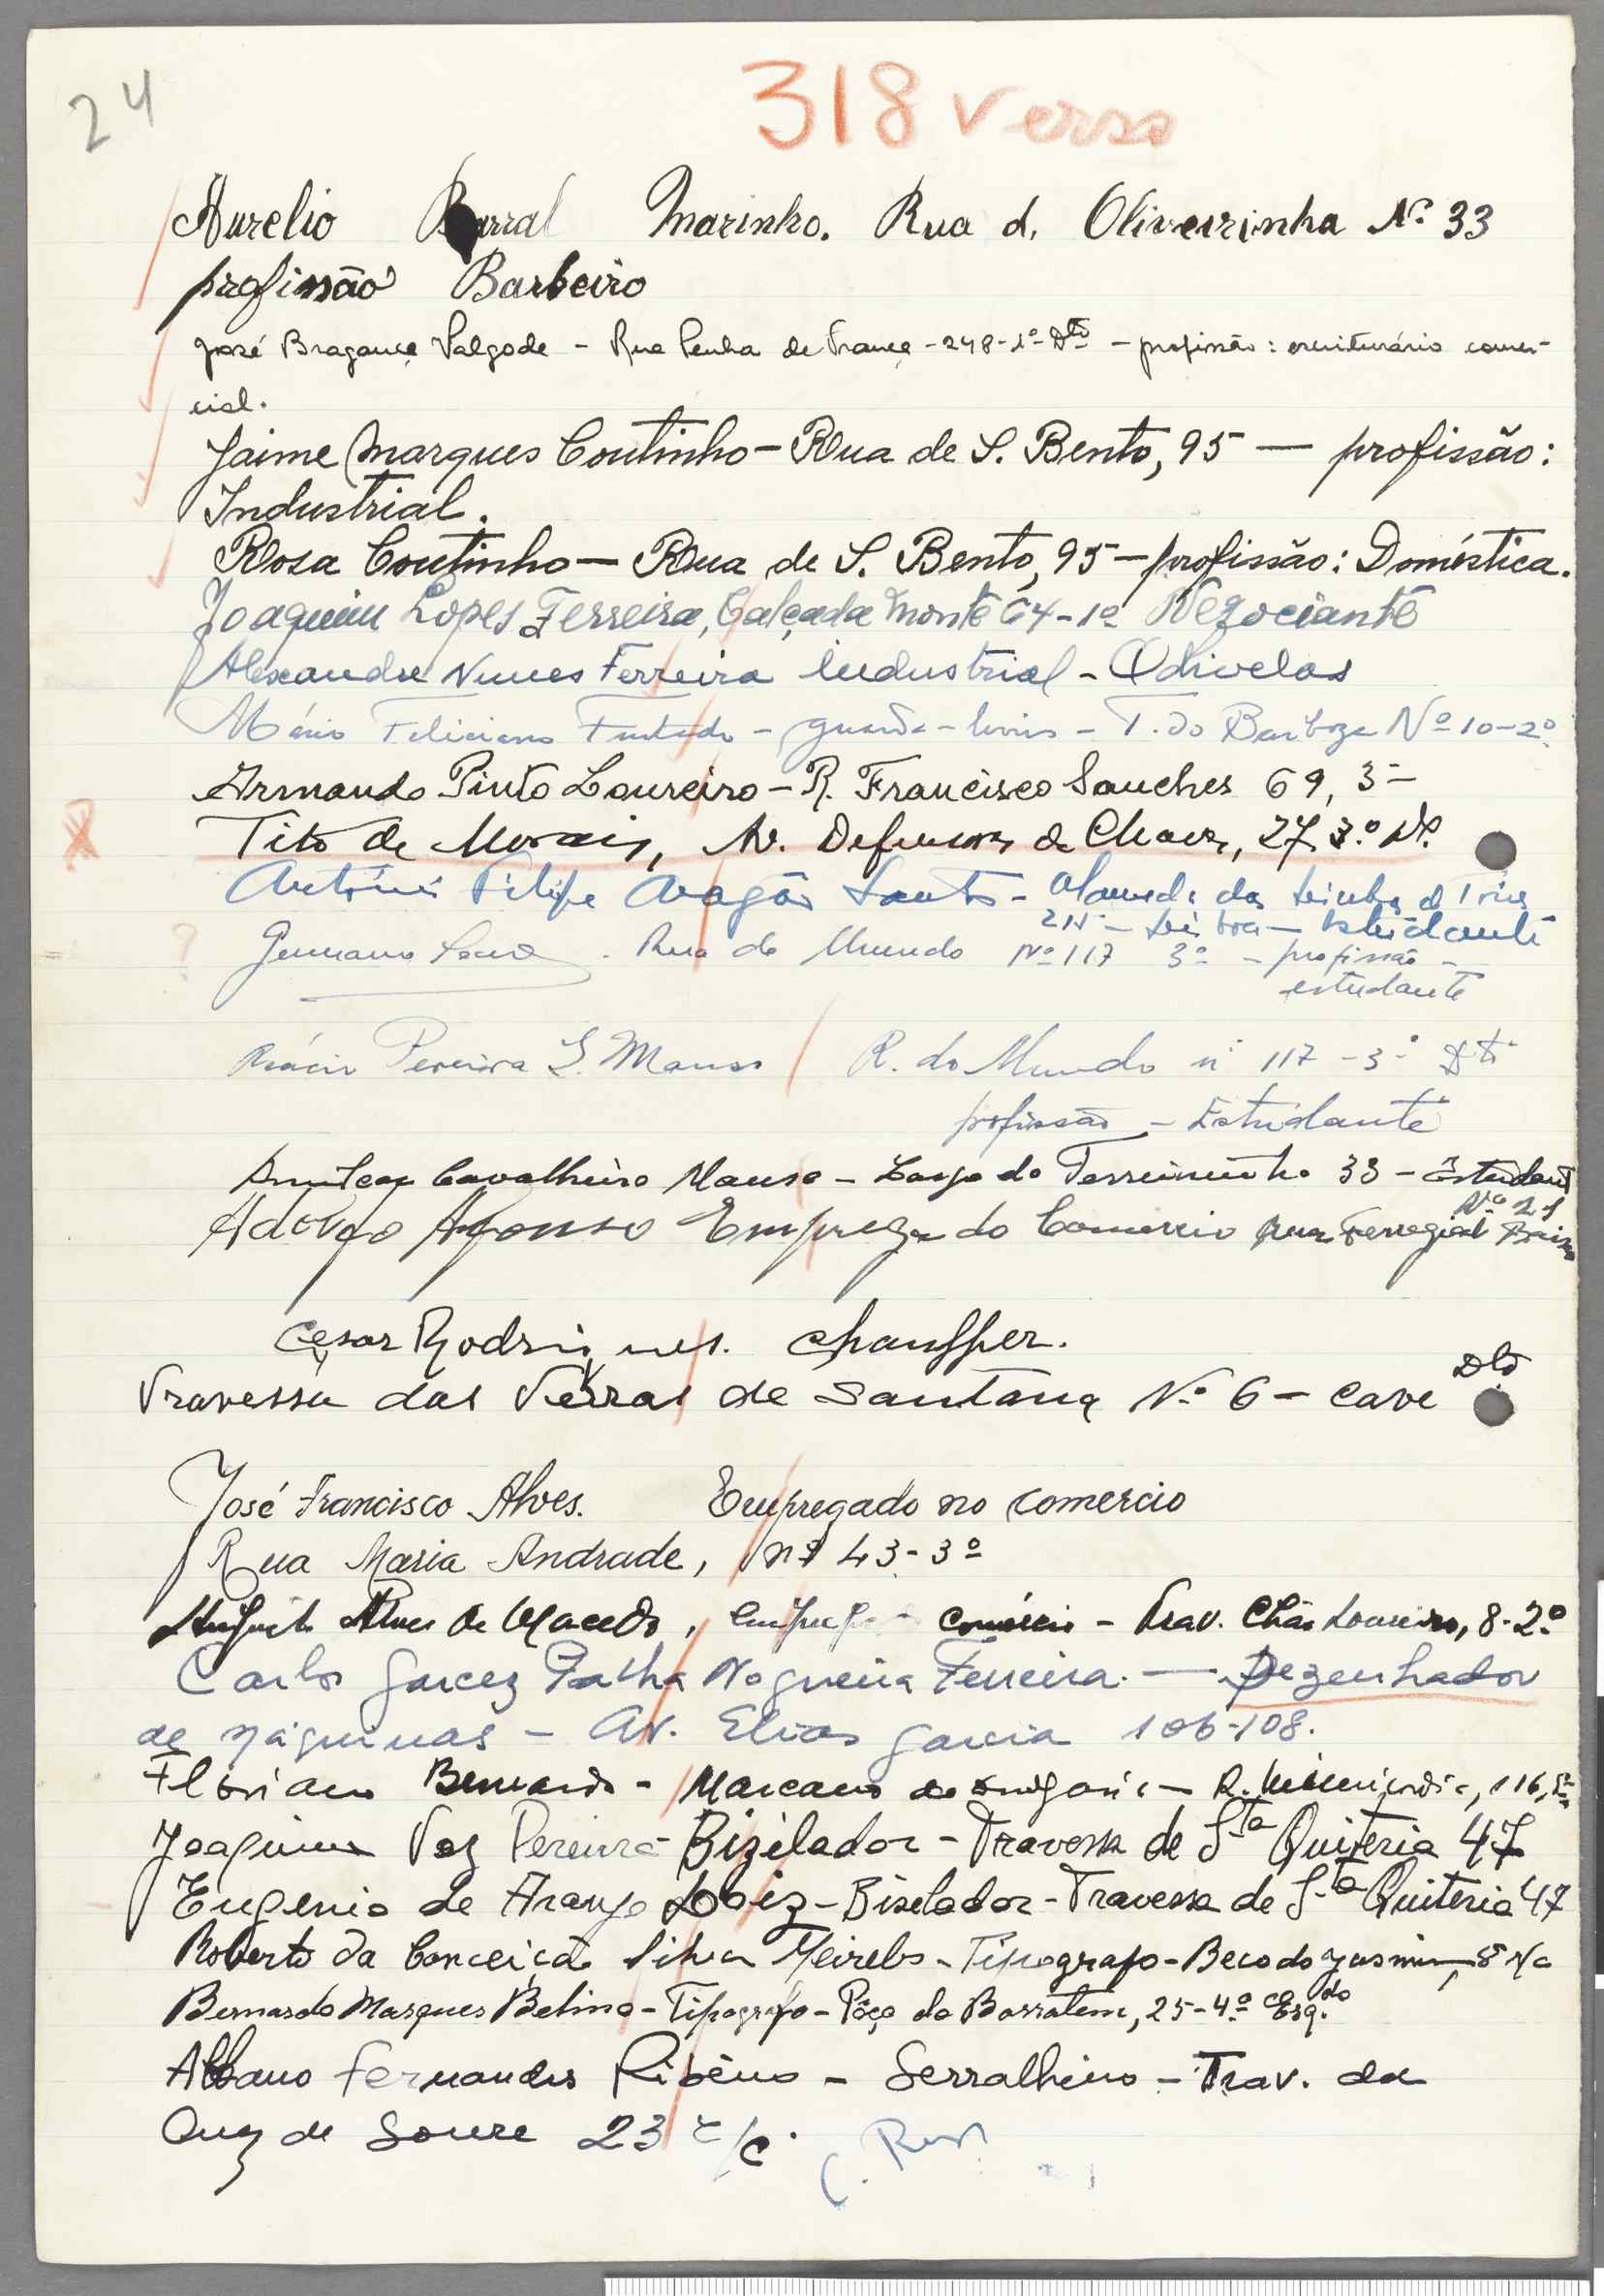 24
318 verso
Aurelio Barral Marinho. Rua d. Oliveirinha Nº 33
profissão Barbeiro
José Bragança Valgode - Rua Penha de França - 248-1º Dtº - profissão: escriturário comer-
cial.
Jaime Marques Coutinho - Rua de S. Bento, 95 — profissão:
Industrial.
Rosa Coutinho — Rua de S. Bento, 95 - profissão: Doméstica.
Joaquim Lopes Ferreira, Calçada Monte 64-1º Negociante
Alexandre Nunes Ferreira Industrial - Odivelas
Mário Feliciano Furtado - guarda-livros - T. do Barbosa Nº 10-2º
Armando Pinto Loureiro - R. Francisco Sanches 69, 3º
Tito de Morais, Av. Defensores de Chaves, 27 3º Dº.
António Filipe Aragão Santos - Alameda das Linhas de Torres
215 - Lisboa - Estudante
Germano - Rua do Mundo Nº 117 3º - profissão -
estudante
Pereira S. Manso R. do Mundo nº 117 - 3º Dtº
profissão - Estudante
Amilcar Cavalheiro Manso - Largo do Terreirinho 33 - Estudant
Adolfo Afonso Empregado Comercio Rua Ferregial Baixo Nº 21
Cesar Rodrigues. Chauffer.
Travessa das Terras de Santana Nº 6 - Cave Dtº
José Francisco Alves. Empregado no comercio
Rua Maria Andrade, nº 43-3º
Augusto Alves de Macedo, comércio - Trav. Chão Loureiro, 8-2º
Carlos Garcez Palha Nogueira Ferreira. — Dezenhador
de máquinas - Av. Elias Garcia 106-108.
Floriano Bernardo - Marçano de drogaria - R. Misericordia, 116, 5º
Joaquim Vaz Pereira - Bizelador - Travessa de Sta Quiteria 47
Eugenio de Araujo - Biselador - Travessa de Sta Quiteria 47
Roberto da Conceição Silva Meireles - Tipografo - Beco do Jasmim, 8
Bernardo Marques Belino - Tipografo - Pôço do Borratem, 25-4º Esq.do
Albano Fernandes Ribeiro - Serralheiro - Trav. da
Cruz de Soure 23 r/c.